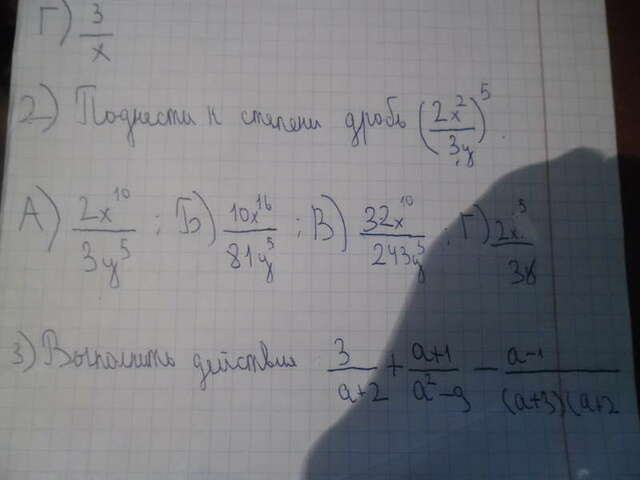 Г) 3/x
2) Поднести к степени дробь (2x²/3y)⁵.
А) 2x¹⁰/3y⁵; Б) 10x¹⁶/81y⁵; В) 32x¹⁰/243y⁵; Г) 2x⁵/3y
3) Выполнить действия 3/(a+2) + (a+1)/(a²-9) - (a-1)/(a+3)(a+2